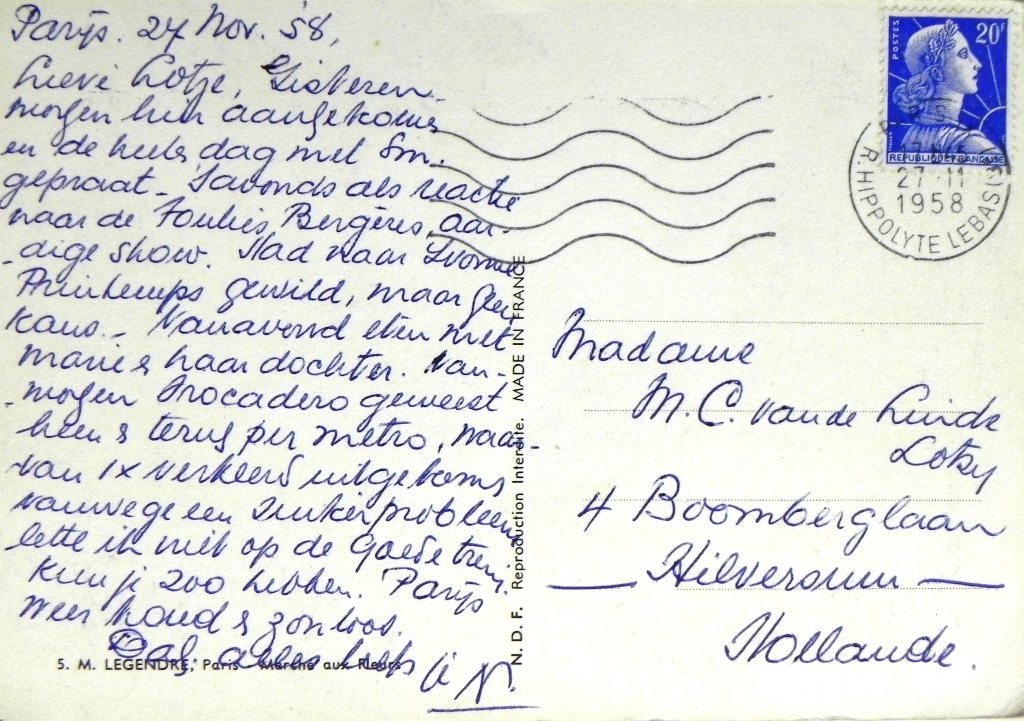 Parijs. 24 Nov. '58,
Lieve Lotje, Gisteren
morgen hier aangekomen
en de heele dag met Sm.
gepraat - 's avonds als reactie
naar de Foulies Bergères, aar-
-dige show. Had naar Yvonne
Printemps gewild, maar geen
kans. - Vanavond eten met
Marie & haar dochter. Van-
-morgen Trocadero geweest
heen & terug per metro, waar-
van 1x verkeerd uitgekomen
vanwege een probleem
lette ik niet op de goede trein.
Kun je zoo hebben. Parijs
weer koud & zonloos.
Dag, alles liefs
je N.
5. M. LEGENDRE, Paris - Marché aux Fleurs
N. D. F. Reproduction Interdite. MADE IN FRANCE
POSTES
20F
REPUBLIQUE FRANÇAISE
27 - 11
1958
R. HIPPOLYTE LEBAS (9
Madame
M. C. van de Linde
Lotsy
4 Boomberglaan
Hilversum
Hollande.